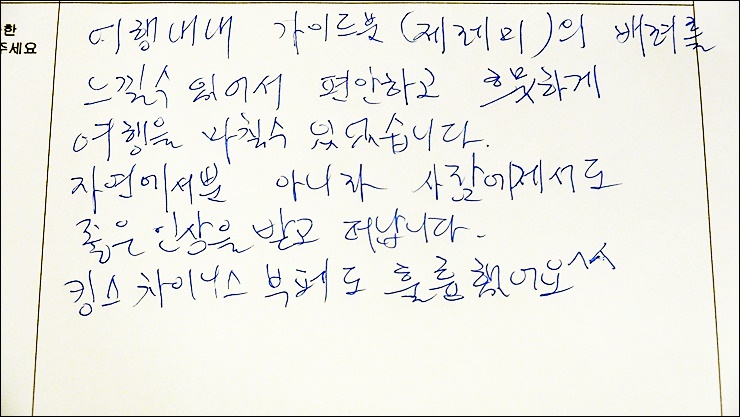 한
주세요
여행내내 가이드분(제레미)의 배려를
느낄수 있어서 편안하고 흐뭇하게
여행을 마칠수 있었습니다.
자연에서뿐 아니라 사람에게서도
좋은 인상을 받고 떠납니다.
킹스 차이니스 부페도 훌륭했어요^^